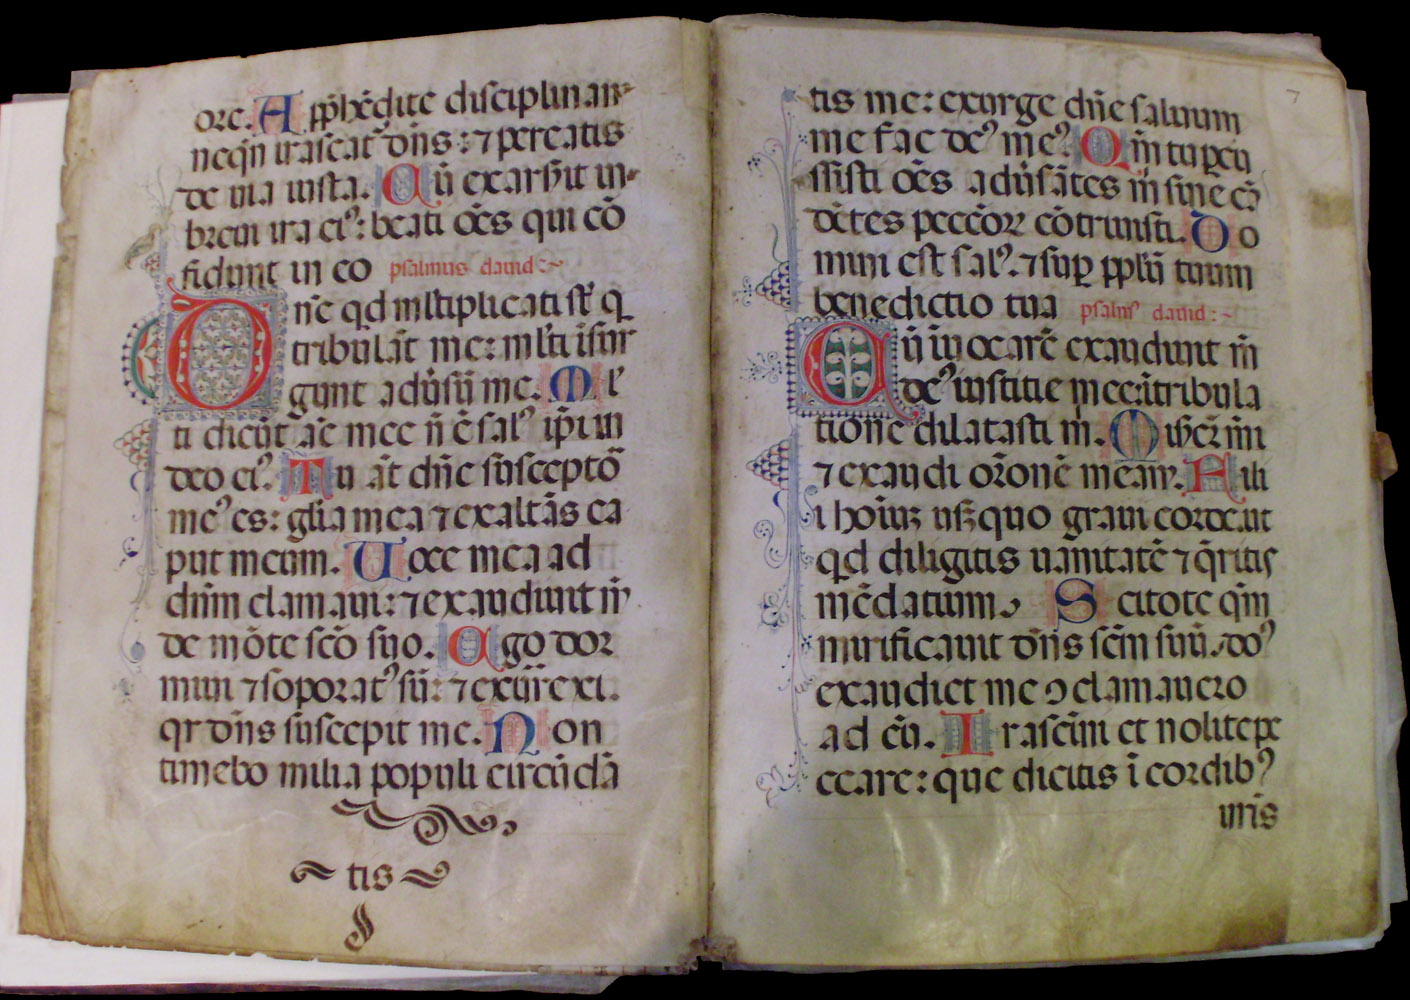 ore. Apphēdite disciplinam
neqū irascat᷑ dn̄s: ⁊ pereatis
de uia iusta. Cū exarsīt in
breui ira ei᷒: beati oēs qui cō
fidunt in eo psalmus dauid
Dn̄e qd mltiplicati st̄ q
tribulāt me: ml̄ti īsur
gunt adūsū me. Ml̄
ti dicūt aīe mee n̄ ē sal᷒ ip̄i in
deo ei᷒. Tu āt dn̄e susceptō
me᷒ es: gl̄ia mea ⁊ exaltās ca
put meum. Uoce mea ad
dn̄m clamaui: ⁊ exaudiuit m̄
de mōte scō suo. Ego dor
miui ⁊ soporat᷒ sū: ⁊ exurrexi.
qr dn̄s suscepit me. Non
timebo milia populi circūdā
tis
tis me: exurge dn̄e saluum
me fac de᷒ me᷒. Qm̄ tu ꝑcu
ssisti oēs adūsātes m̄ sine cā
dētes peccōꝝ cōtriuisti. Do
mini est sal᷒. ⁊ suꝑ ppl̄ū tuum
benedictio tua psalm᷒ dauid:
Cū inuocarē exaudiuit m̄
de᷒ iustitie mee: ītribula
tione dilatasti m̄. Mis̄er̄ m̄i
⁊ exaudi or̄onē meam. Fili
i hoīuꝫ usꝫquo graui corde. ut
qd diligitis uanitatē ⁊ q̄ritis
mēdatium. Scitote qm̄
mirificauit dn̄s sc̄m suū. do᷒
exaudiet me ꝯclamauero
ad eū. Irascīmi et nolite pe
ccare: que dicitis ī cordib᷒
ur̄is
7